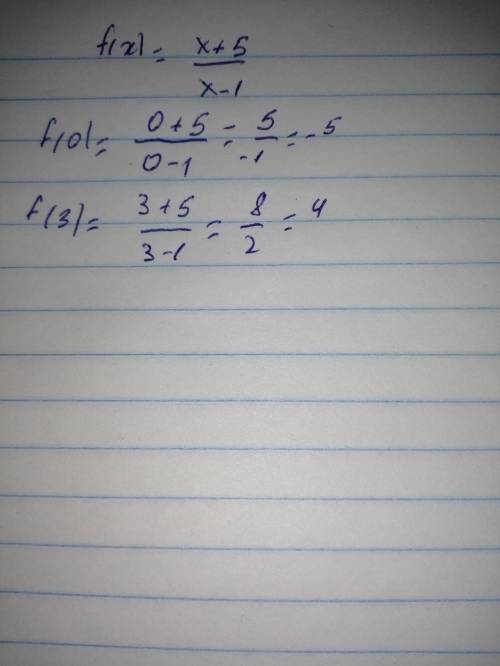 f(x) = x+5 / x-1
f(0) = 0+5 / 0-1 = 5 / -1 = -5
f(3) = 3+5 / 3-1 = 8 / 2 = 4